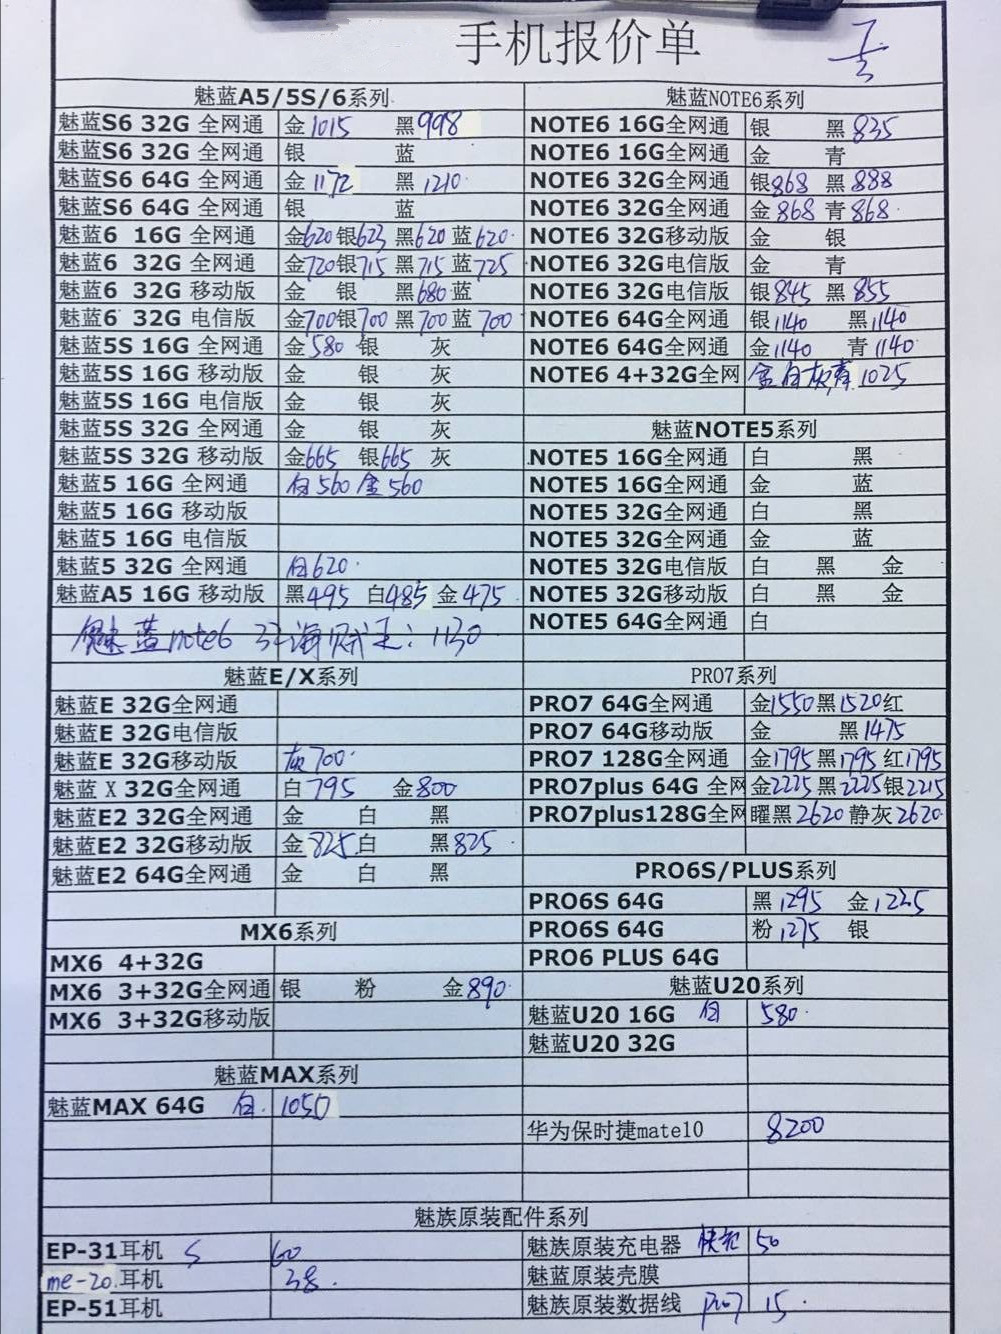 手机报价单
7/3
魅蓝A5/5S/6系列
魅蓝S6 32G 全网通 金1015 黑998
魅蓝S6 32G 全网通 银 蓝
魅蓝S6 64G 全网通 金1172 黑1210
魅蓝S6 64G 全网通 银 蓝
魅蓝6 16G 全网通 金620 银623 黑620 蓝620
魅蓝6 32G 全网通 金720 银715 黑715 蓝725
魅蓝6 32G 移动版 金 银 黑680 蓝
魅蓝6 32G 电信版 金700 银700 黑700 蓝700
魅蓝5S 16G 全网通 金580 银 灰
魅蓝5S 16G 移动版 金 银 灰
魅蓝5S 16G 电信版 金 银 灰
魅蓝5S 32G 全网通 金 银 灰
魅蓝5S 32G 移动版 金665 银665 灰
魅蓝5 16G 全网通 白560 金560
魅蓝5 16G 移动版
魅蓝5 16G 电信版
魅蓝5 32G 全网通 白620
魅蓝A5 16G 移动版 黑495 白485 金475
魅蓝note6 海贼王：1130
魅蓝NOTE6系列
NOTE6 16G全网通 银 黑835
NOTE6 16G全网通 金 青
NOTE6 32G全网通 银868 黑888
NOTE6 32G全网通 金868 青868
NOTE6 32G移动版 金 银
NOTE6 32G电信版 金 青
NOTE6 32G电信版 银845 黑855
NOTE6 64G全网通 银1140 黑1140
NOTE6 64G全网通 金1140 青1140
NOTE6 4+32G全网 金白灰青1025
魅蓝NOTE5系列
NOTE5 16G全网通 白 黑
NOTE5 16G全网通 金 蓝
NOTE5 32G全网通 白 黑
NOTE5 32G全网通 金 蓝
NOTE5 32G电信版 白 黑 金
NOTE5 32G移动版 白 黑 金
NOTE5 64G全网通 白
魅蓝E/X系列
魅蓝E 32G全网通
魅蓝E 32G电信版
魅蓝E 32G移动版 灰700
魅蓝X 32G全网通 白795 金800
魅蓝E2 32G全网通 金 白 黑
魅蓝E2 32G移动版 金825 白 黑825
魅蓝E2 64G全网通 金 白 黑
PRO7系列
PRO7 64G全网通 金1550 黑1520 红
PRO7 64G移动版 金 黑1475
PRO7 128G全网通 金1795 黑1795 红1795
PRO7plus 64G 全网 金2225 黑2225 银2215
PRO7plus128G全网 曜黑2620 静灰2620
MX6系列
MX6 4+32G
MX6 3+32G全网通 银 粉 金890
MX6 3+32G移动版
PRO6S/PLUS系列
PRO6S 64G 黑1295 金1225
PRO6S 64G 粉1275 银
PRO6 PLUS 64G
魅蓝U20系列
魅蓝U20 16G 白 580
魅蓝U20 32G
魅蓝MAX系列
魅蓝MAX 64G 白 1050
华为保时捷mate10 8200
魅族原装配件系列
EP-31耳机 S 60
me-20耳机 38
EP-51耳机
魅族原装充电器 快充 50
魅蓝原装壳膜
魅族原装数据线 pro7 15